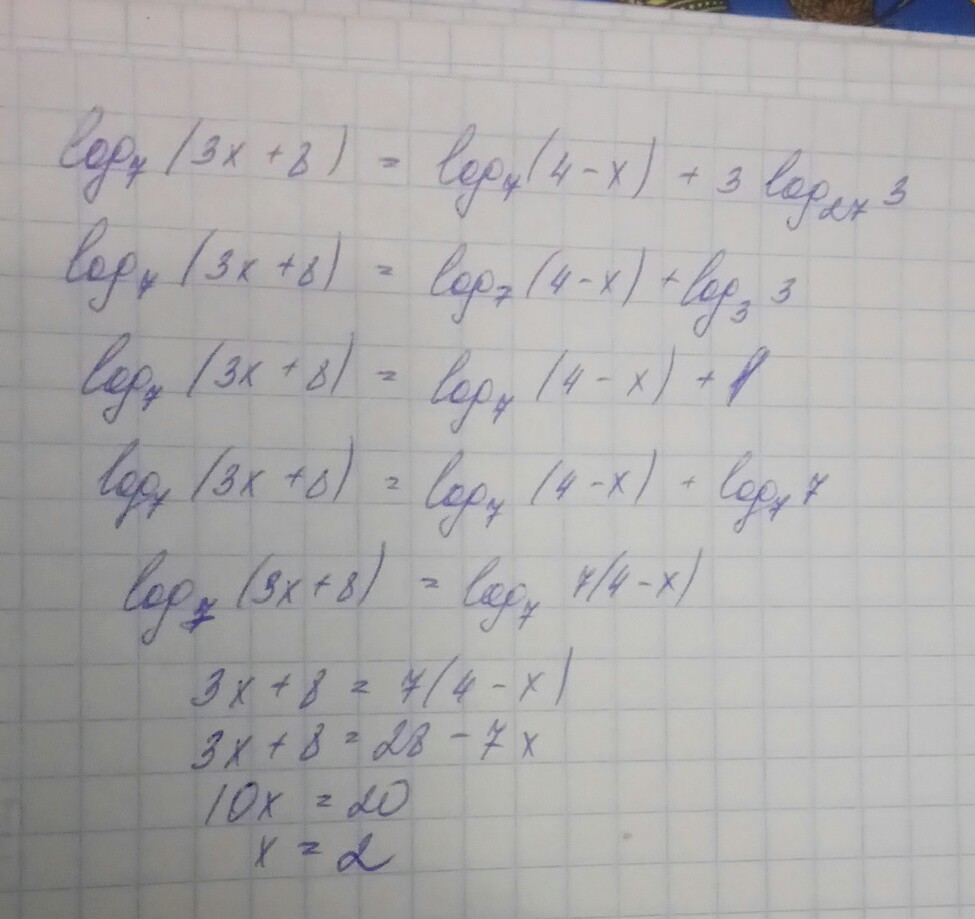 log₇ (3x + 8) = log₇ (4 - x) + 3 log₂₇ 3
log₇ (3x + 8) = log₇ (4 - x) + log₃ 3
log₇ (3x + 8) = log₇ (4 - x) + 1
log₇ (3x + 8) = log₇ (4 - x) + log₇ 7
log₇ (3x + 8) = log₇ 7(4 - x)
3x + 8 = 7(4 - x)
3x + 8 = 28 - 7x
10x = 20
x = 2